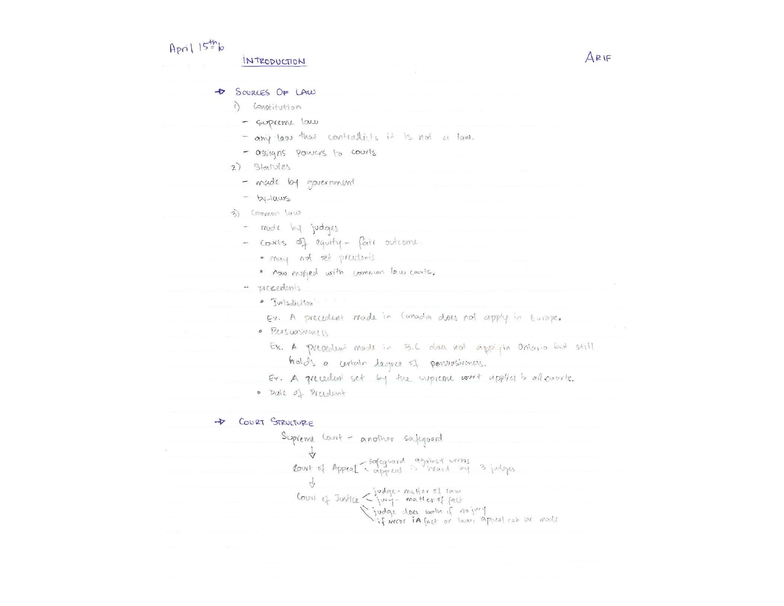 April 15th
INTRODUCTION
ARIF
→ SOURCES OF LAW
1) Constitution
- supreme law
- any law that contradicts it is not a law.
- assigns powers to courts
2) Statutes
- made by government
- by-laws
3) Common law
- made by judges
- courts of equity - fair outcome
• may not set precedents
• Now merged with common law courts.
- precedents
• Jurisdiction
Ex. A precedent made in Canada does not apply in Europe.
• Persuasiveness
Ex. A precedent made in B.C does not apply in Ontario but still
holds a certain degree of persuasiveness.
Ex. A precedent set by the supreme court applies to all courts.
• Date of Precedent
→ COURT STRUCTURE
Supreme Court - another safeguard
↓
Court of Appeal - safeguard against errors
- appeal is heard by 3 judges
↓
Court of Justice
judge - matter of law
jury - matter of fact
judge does both if no jury
if error in fact or law, appeal can be made